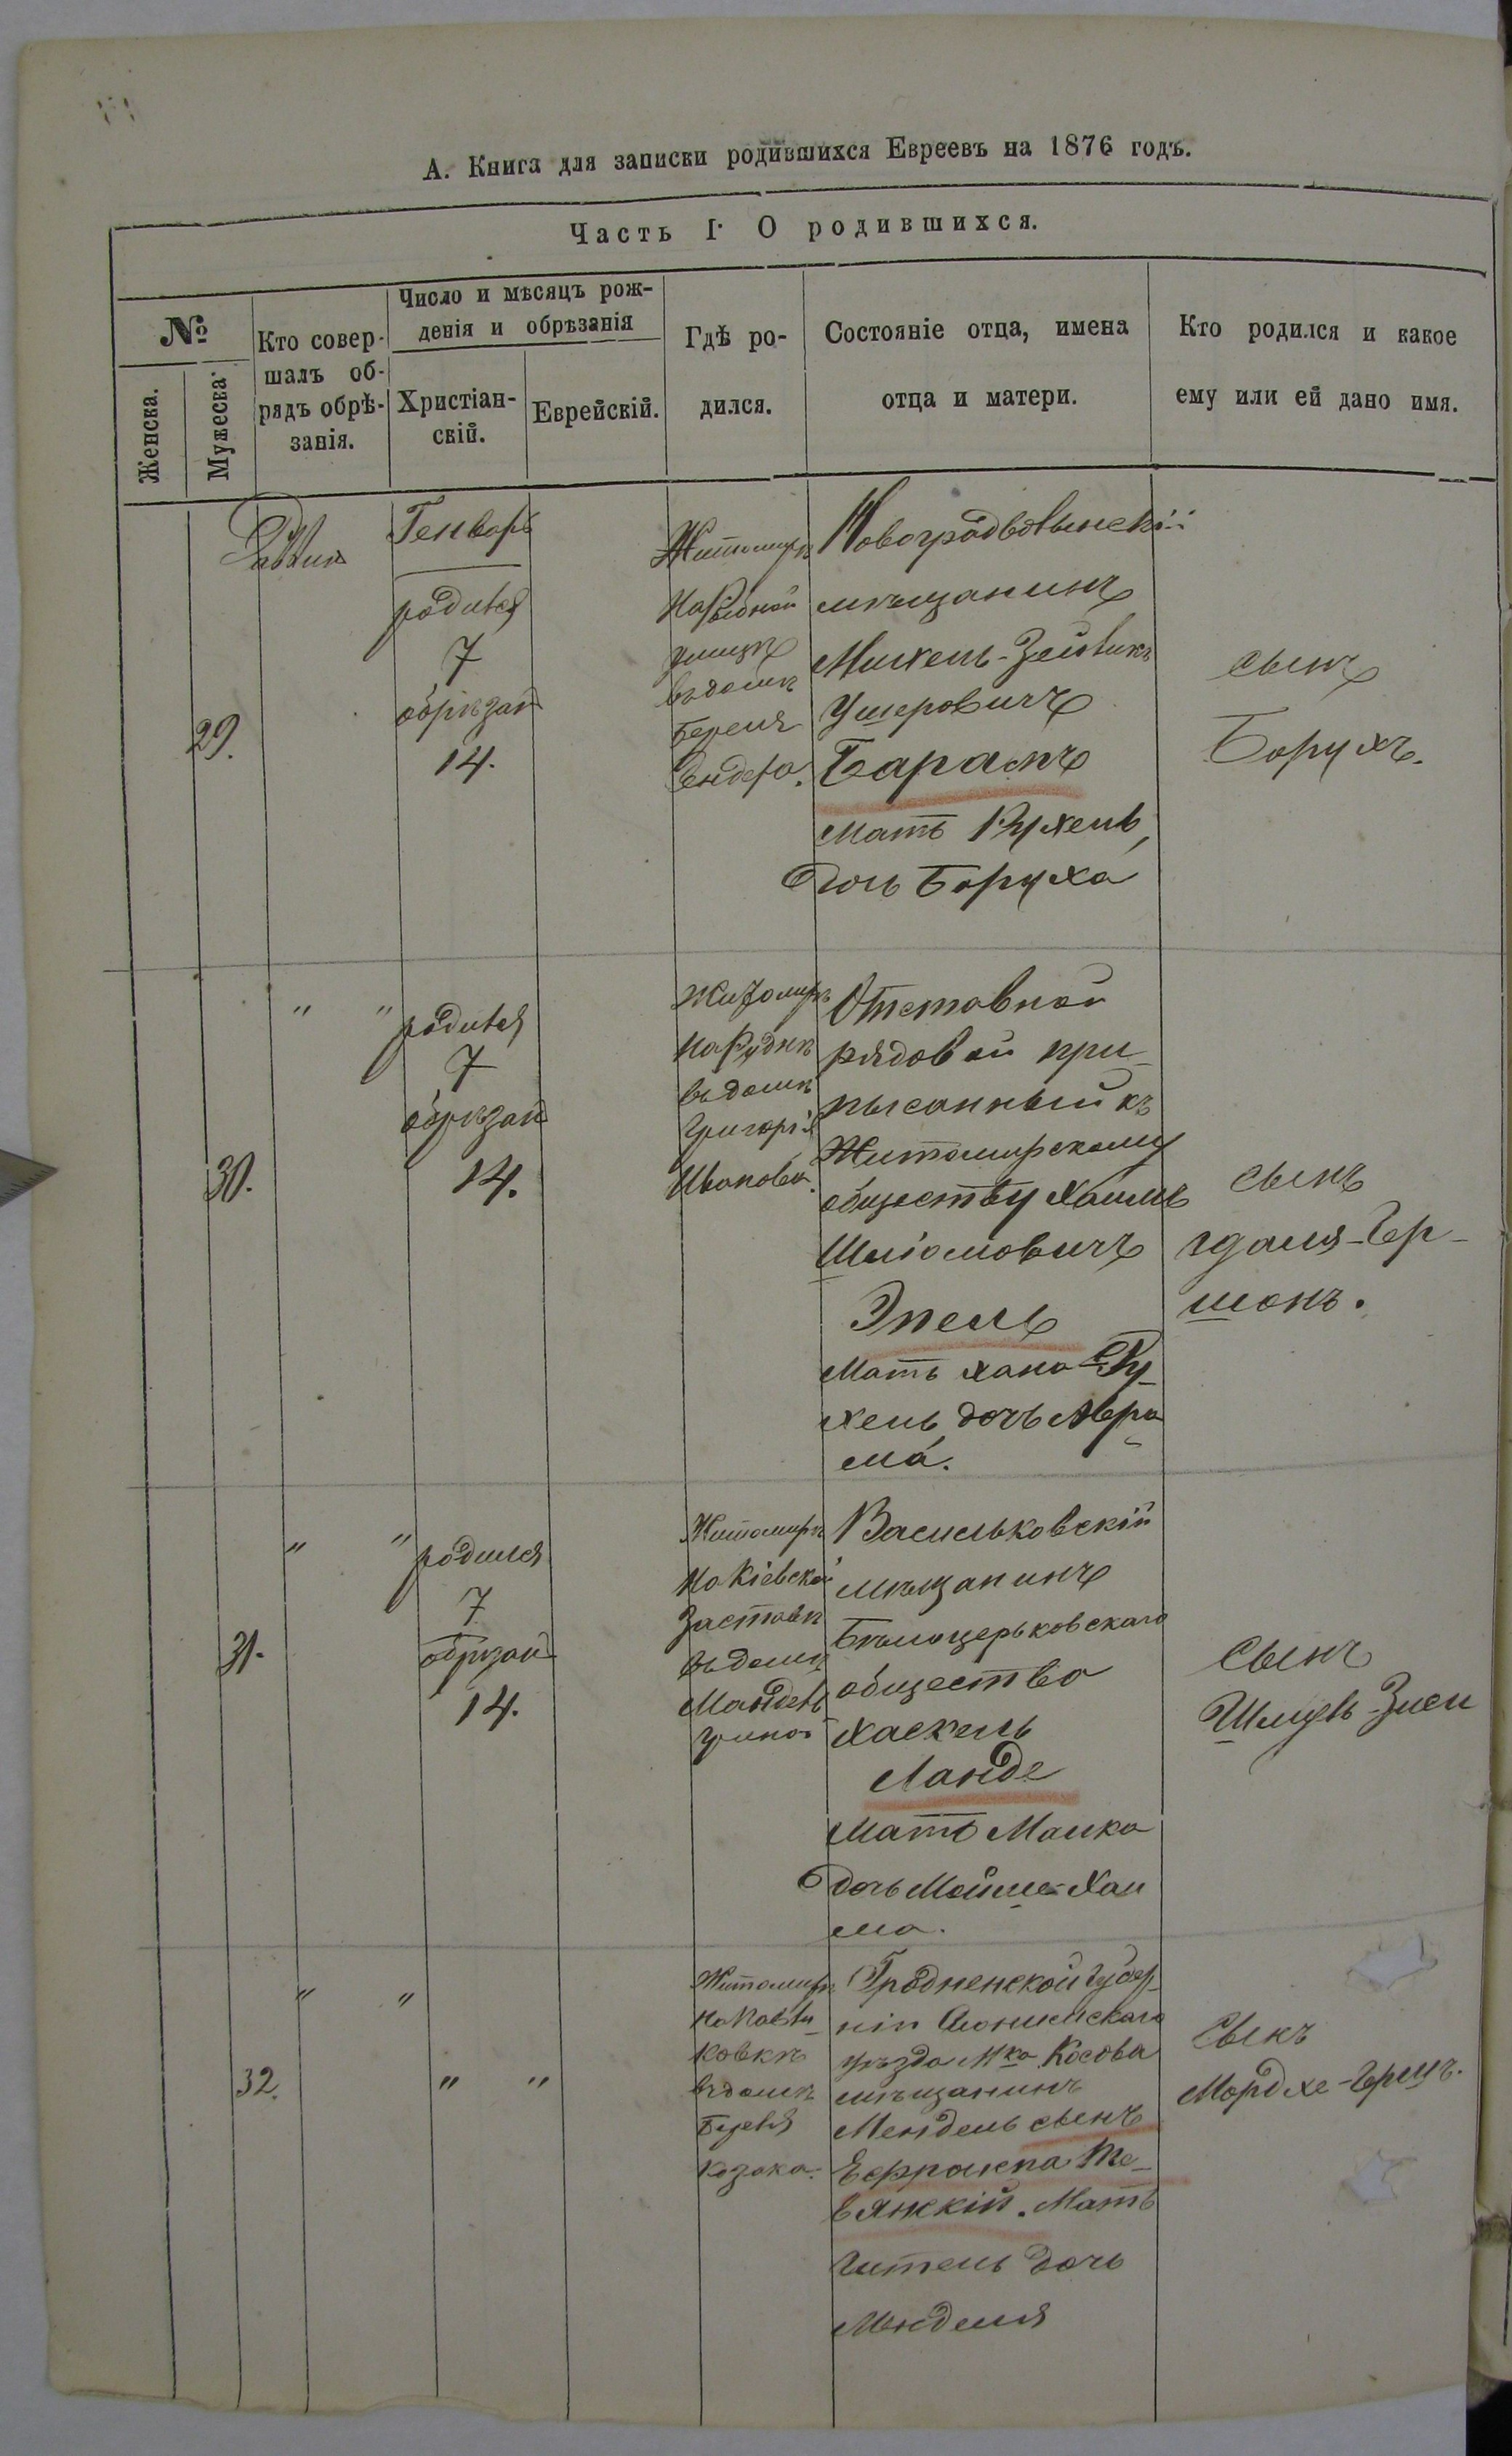 А. Книга для записки родившихся Евреевъ на 1876 годъ.
Часть I. О родившихся.
№
Женска.
Мужеска.
Кто совер-
шалъ об-
рядъ обрѣ-
занія.
Число и мѣсяцъ рож-
денія и обрѣзанія
Христіан-
скій.
Еврейскій.
Гдѣ ро-
дился.
Состояніе отца, имена
отца и матери.
Кто родился и какое
ему или ей дано имя.
29.
Раввин
Генварь
родился
7
обрѣзан
14.
Житомирѣ
на
улицѣ
въ домѣ
Новоградволынскій
мѣщанинъ
Михель-Зейвикъ
Ушеровичъ
Барамъ
Мать Рухель,
дочь Боруха
сынъ
Борухъ.
30.
" "
родился
7
обрѣзан
14.
Житомирѣ
на Руднѣ
въ домѣ
Григорія
Иванова.
Отставной
рядовой при-
писанный къ
Житомирскому
обществу Хаимъ
Шліомовичъ
Эпель
Мать Хана-Ру-
хель дочь Авра
ма.
сынъ
Гдаля-Гер-
шонъ.
31.
" "
родился
7
обрѣзан
14.
Житомирѣ
на Кіевской
заставѣ
въ домѣ
Мандель
Васильковскій
мѣщанинъ
Бѣлоцерьковскаго
общества
Хаскель
Ланде
Мать Малка
дочь Мойше-Хаи
ма.
сынъ
Шмуль-Зиси
32.
" "
" "
Житомирѣ
на Павли-
ковкѣ
въ домѣ
козака.
Гродненской Губер-
ніи Слонимскаго
уѣзда М<u>ка</u> Косова
мѣщанинъ
Мендель сынъ
Ефроима Те-
вянскій. Мать
Гитель дочь
Менделя
Сынъ
Мордхе-Гершъ.